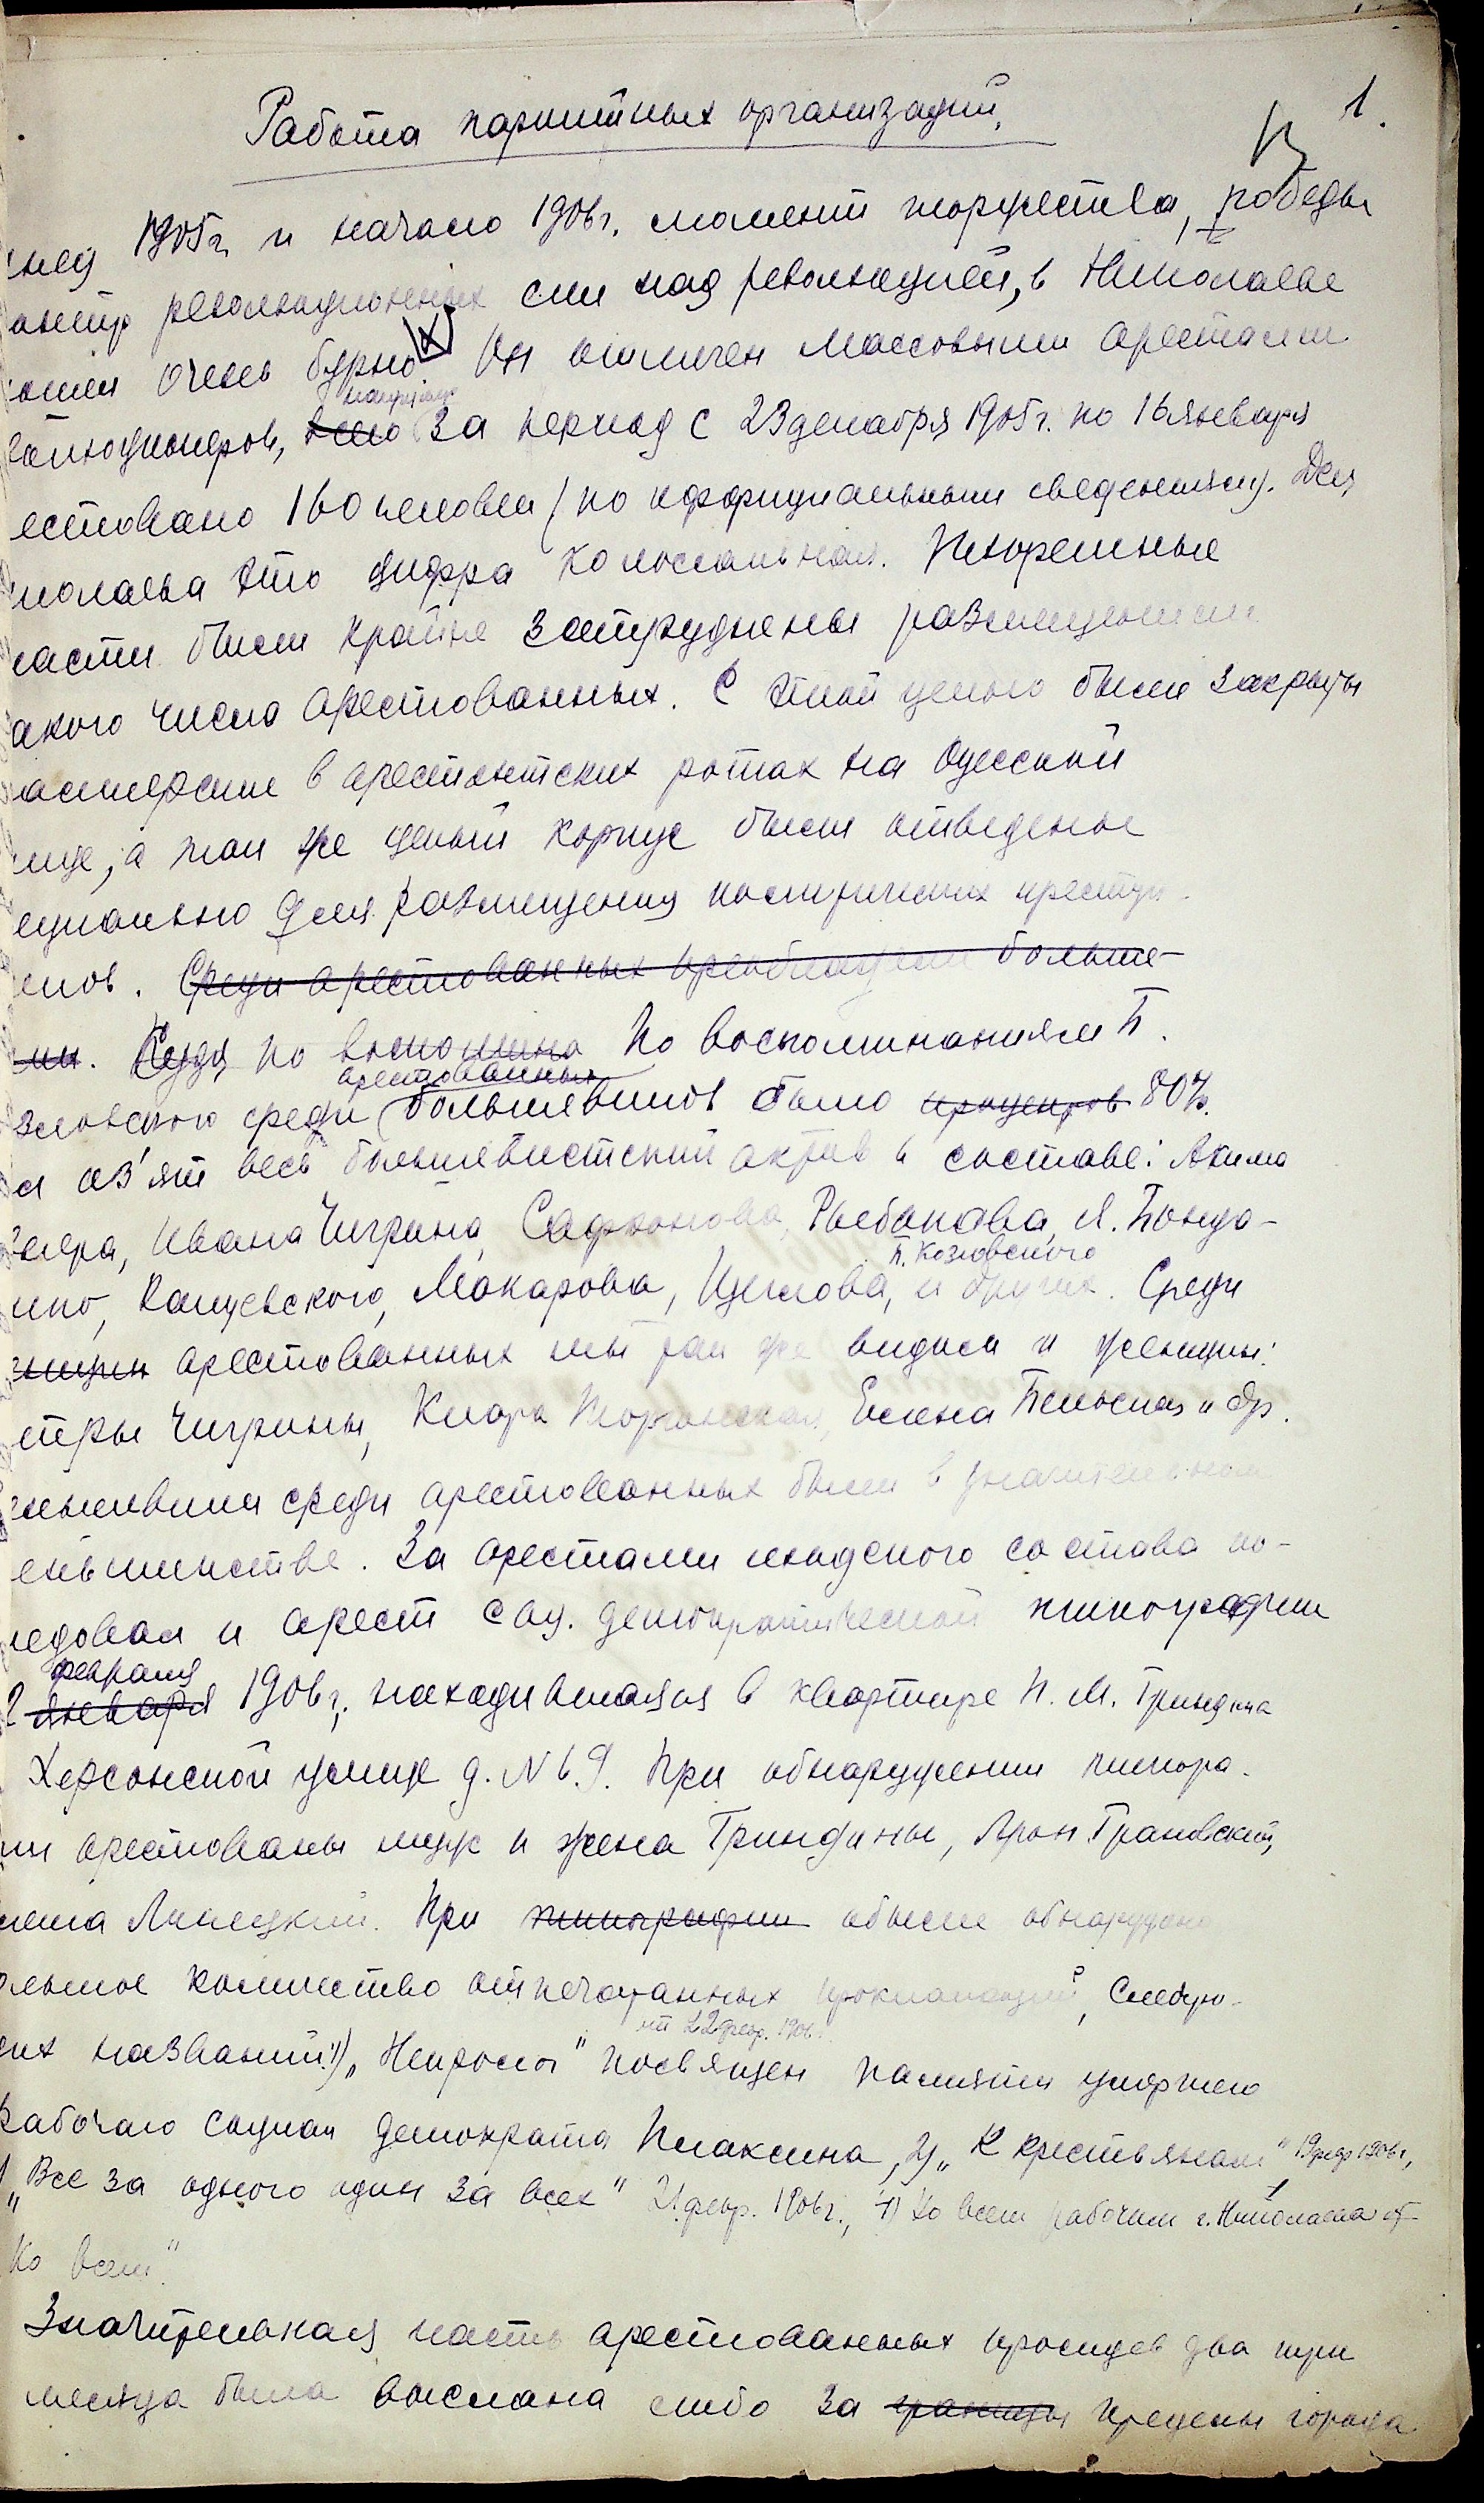 1.
Работа партийных организаций.
1905г. и начало 1906г. момент торжества, победы
революционных сил над революцией, в Николаеве
очень бурно Он отмечен массовыми арестами
например
всего За период с 23 декабря 1905г. по 16 января
естовано 160 человек (по официальным сведениям). Для
иколаева это цифра колоссальная. Тюремные
ласти были крайне затруднены размещением
акого числа арестованных. С этой целью были закрыты
астерские в арестантских ротах на Одесской
лице, а так же целый корпус были отведены
ециально для размещения политических преступ-
ников. Среди арестованных преобладали больше-
ки. Судя по воспомина По воспоминаниям П.
арестованных
зловского среди большевиков было процентов 80%.
л из'ят весь большевистский актив в составе: Акима
Ивана Чигрина, Сафронова, Рыбакова, Л. Бонда-
П. Козловского
Кащевского, Макарова, Цеглова, и других. Среди
арестованных мы так же видим и женщин:
стры Чигрины, Клара Елена Бельская и др.
ньшевики среди арестованных были в значительном
еньшинстве. За арестами людского состава по-
ледовал и арест соц. демократической типографии
февраля
2 января 1906г., находившаяся в квартире П. М. Гриндина
Херсонской улице д. № 69. При обнаружении типогра-
ии арестованы муж и жена Гриндины, Арон Грановский,
Липецкий. При типографии обыске обнаружено
ольшое количество отпечатанных прокламаций, следую-
от 22 февр. 1906г.
щих названий: 1) „Некролог" посвящен памяти умершего
рабочего социал демократа Плаксина, 2) „К крестьянам" 19 февр 1906г.,
„Все за одного один за всех" 21 февр. 1906г., 4) Ко всем рабочим г. Николаева от
Ко всем"
Значительная часть арестованных просидев два три
месяца была выслана либо за границы пределы города